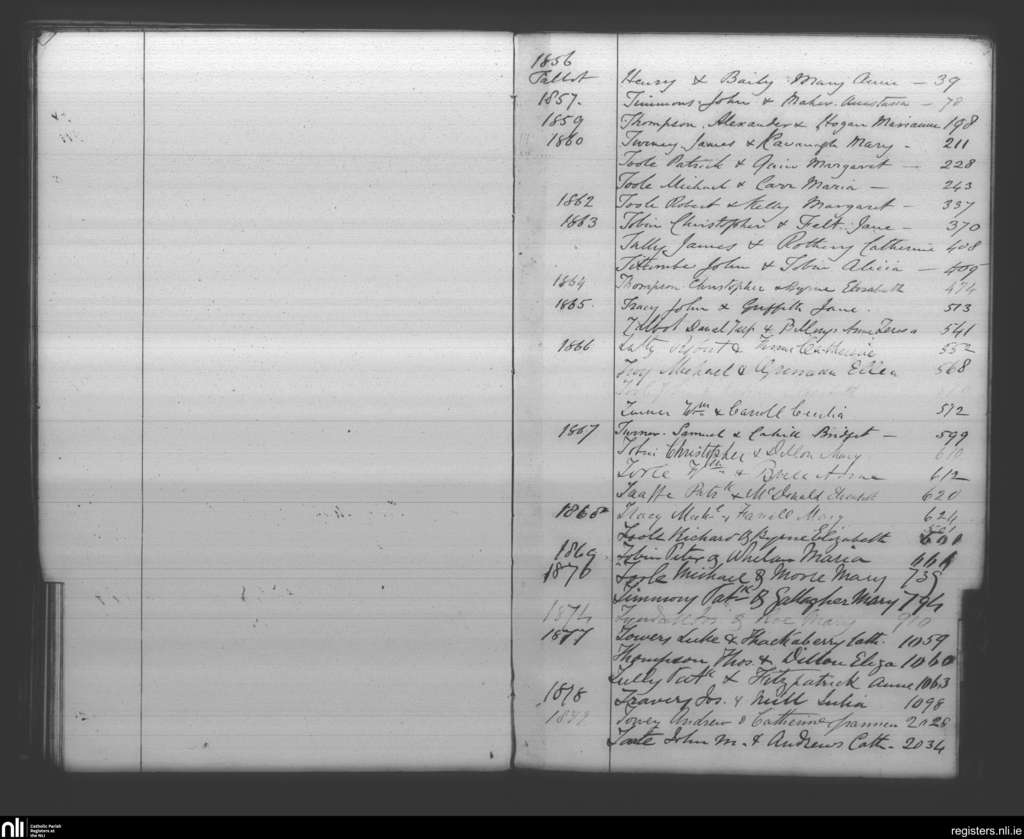 1856
Talbot Henry & Baily Mary Anne — 39
1857. Timmons John & Maher Anastasia — 78
1859 Thompson Alexander & Hogan Marianne 198
1860 James & Kavanagh Mary - 211
Toole Patrick & Margaret — 228
Toole Michael & Carr Maria — 243
1862 Toole Robert & Kelly Margaret — 337
1863 Tobin Christopher & Felt Jane — 370
Tally James & Rothery Catherine 408
Titcombe John & Tobin Alicia — 409
1864 Thompson Christopher & Byrne Elizabeth 474
1865. Tracy John & Griffith Jane. 513
Talbot Daniel & Anne Teresa 541
1866 & 552
Troy Michael & Ellen 568
Turner Wm & Carroll Cecilia 572
1867 Turner Samuel & Cahill Bridget — 599
Tobin Christopher & Dillon Mary 610
Toole Wm & 612
Taaffe Patrk & McDonald 620
1868 Tracy Michl & Farrell Mary 624
Toole Richard & Byrne Elizabeth
1869 Tobin Peter & Whelan Maria 661
1870 Toole Michael & Moore Mary 739
Timmons Patk & Gallagher Mary 794
1874 Jos. & Roe Mary 910
1877 Towers Luke & Thackaberry Cath. 1059
Thompson Thos. & Dillon Eliza 1060
Tully Patk & Fitzpatrick Anne 1063
1878 Travers Jos. & Neill Julia 1098
1879 Andrew & Catherine 2025
Toole John M. & Andrews Cath. 2034
nli Catholic Parish
Registers at
the NLI
registers.nli.ie